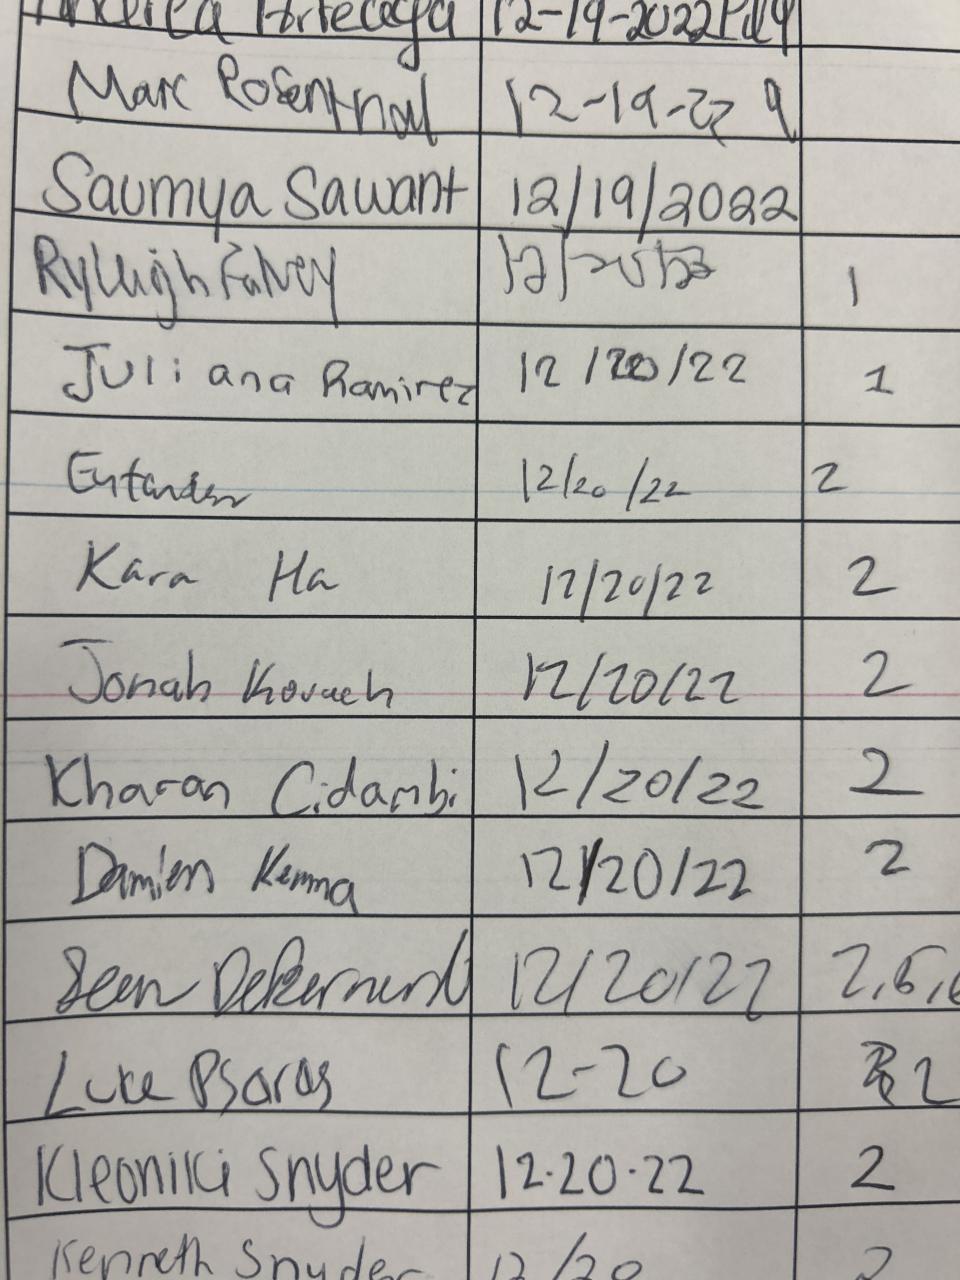 12-19-2022
Marc Rosenthal 12-19-22 9
Saumya Sawant 12/19/2022
Ryleigh Falvey 12/ 1
Juliana Ramirez 12/20/22 1
12/20/22 2
Kara Ha 12/20/22 2
Jonah Kovach 12/20/22 2
Kharan Cidambi 12/20/22 2
Damien Kenma 12/20/22 2
Sean 12/20/22 2,6,6
Luke Psaras 12-20 2
Kleoniki Snyder 12.20.22 2
Kenneth Snyder 12/20 2